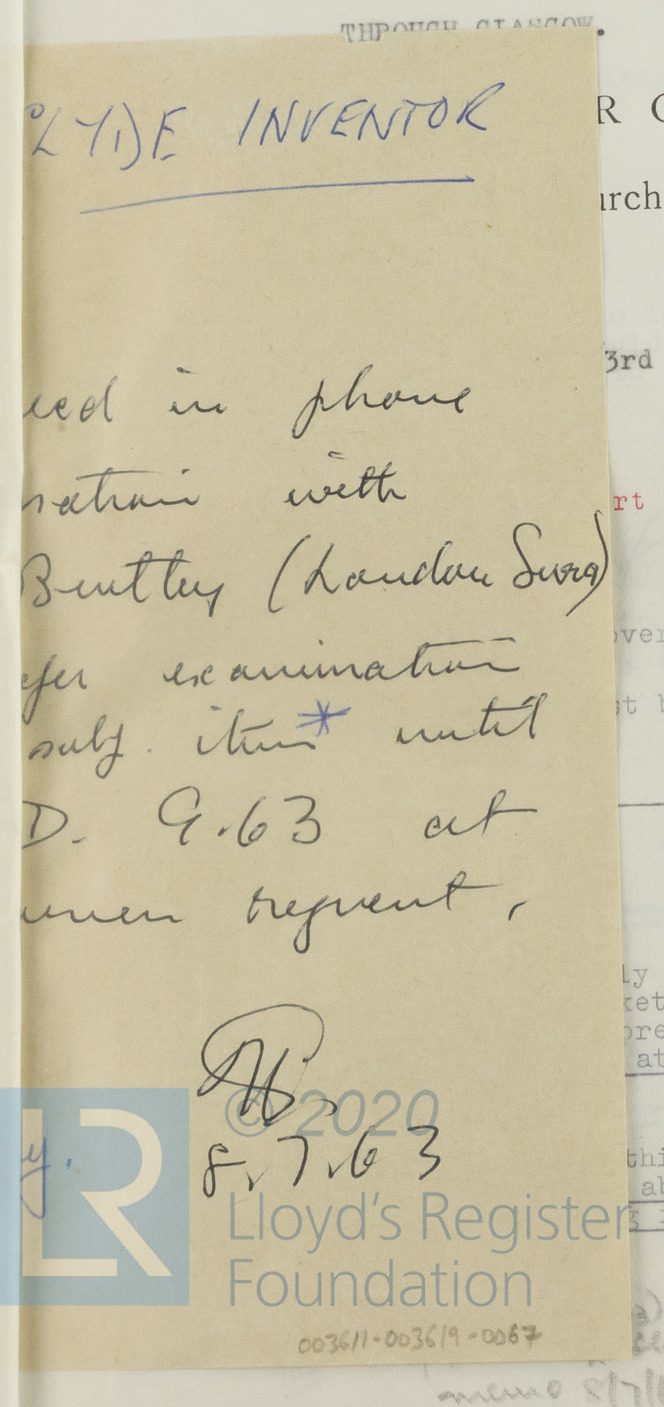 THROUGH GLASGOW.
CLYDE INVENTOR
R C
urch
3rd
eed in phone
rt
rsation with
Bentley (London Survs)
over
efer examination
st b
subj. item* until
D. 9.63 at
wner request.
ly
ket
pre
at
© 2020
y.
8.7.63
thi
ab
LR
Lloyd's Register
Foundation
003611-003619-0067